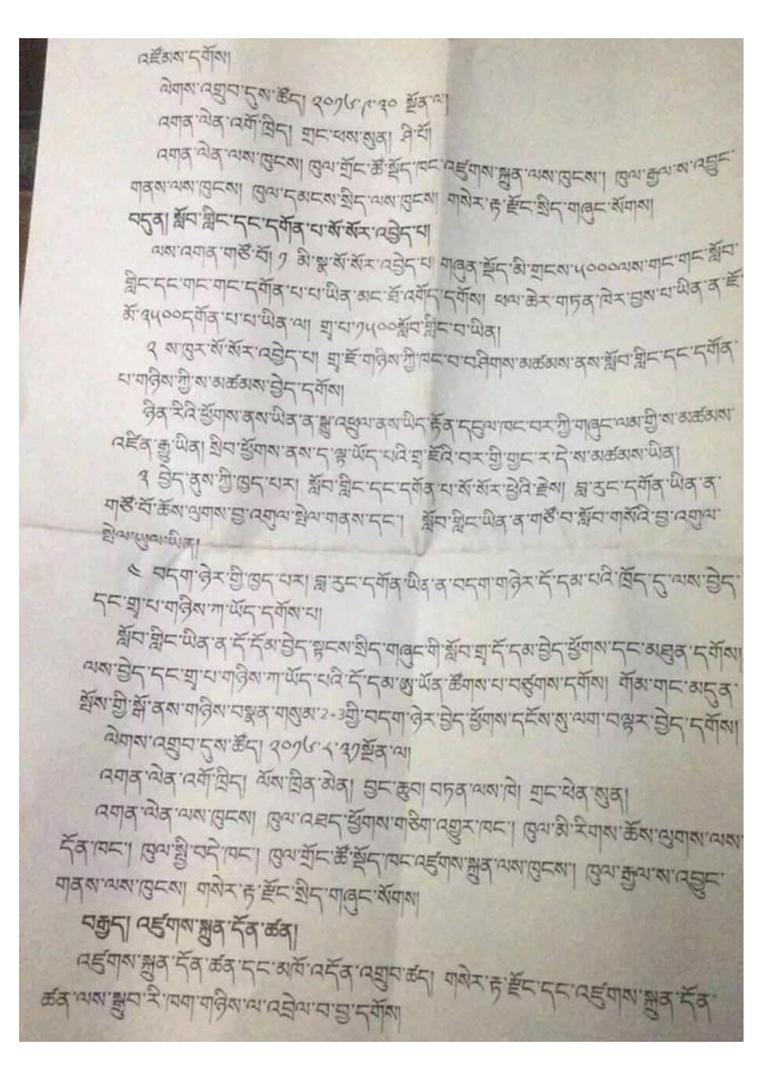 འཛོམས་དགོས།
ལེགས་འགྲུབ་དུས་ཚོད། ༢༠༡༦་༩་༣༠ སྔོན་ལ།
འགན་ལེན་འགོ་ཁྲིད། གྲང་ཕས་སུན། ཤི་པོ།
འགན་ལེན་ལས་ཁུངས། ཁུལ་གྲོང་ཚོ་སྡོད་ཁང་འཛུགས་སྐྲུན་ལས་ཁུངས། ཁུལ་རྒྱལ་ས་འབྱུང་
གནས་ལས་ཁུངས། ཁུལ་དམངས་སྲིད་ལས་ཁུངས། གསེར་རྟ་རྫོང་སྲིད་གཞུང་སོགས།
བདུན། སློབ་གླིང་དང་དགོན་པ་སོ་སོར་འབྱེད་པ།
ལས་འགན་གཙོ་བོ། ༡ མི་སྣ་སོ་སོར་འབྱེད་པ། གཞུན་སྡོད་མི་གྲངས་༥༠༠༠ལས་གང་གང་སློབ་
གླིང་དང་གང་གང་དགོན་པ་པ་ཡིན་མང་ཐོ་འགོད་དགོས། ཕལ་ཆེར་གཏན་ཁེར་བྱས་པ་ཡིན་ན་ཇོ་
མོ་༣༥༠༠དགོན་པ་པ་ཡིན་ལ། གྲྭ་པ་༡༥༠༠སློབ་གླིང་བ་ཡིན།
༢ ས་ཁུར་སོ་སོར་འབྱེད་པ། གྲྭ་ཇོ་གཉིས་ཀྱི་ཁང་བ་བཤིགས་མཚམས་ནས་སློབ་གླིང་དང་དགོན་
པ་གཉིས་ཀྱི་ས་མཚམས་བྱེད་དགོས།
ཉིན་རིའི་ཕྱོགས་ནས་ཡིན་ན་སྒྱུ་འཕྲུལ་ནས་ཡིད་རྟོན་དངུལ་ཁང་བར་ཀྱི་གཞུང་ལམ་གྱི་ས་མཚམས་
འཛིན་རྒྱུ་ཡིན། སྲིབ་ཕྱོགས་ནས་ད་ལྟ་ཡོད་པའི་གྲྭ་ཇོའི་བར་གྱི་གྱང་ར་དེ་ས་མཚམས་ཡིན།
༣ བྱེད་ནུས་ཀྱི་ཁྱད་པར། སློབ་གླིང་དང་དགོན་པ་སོ་སོར་ཕྱེའི་རྗེས། བླ་རུང་དགོན་ཡིན་ན་
གཙོ་བོ་ཆོས་ལུགས་བྱ་འགུལ་སྤེལ་གནས་དང་། སློབ་གླིང་ཡིན་ན་གཙོ་བ་སློབ་གསོའི་བྱ་འགུལ་
སྤེལ་ཡུལ་ཡིན།
༤ བདག་ཉེར་གྱི་ཁྱད་པར། བླ་རུང་དགོན་ཡིན་ན་བདག་གཉེར་དོ་དམ་པའི་ཁྲོད་དུ་ལས་བྱེད་
དང་གྲྭ་པ་གཉིས་ཀ་ཡོད་དགོས་པ།
སློབ་གླིང་ཡིན་ན་དོ་དོམ་བྱེད་སྟངས་སྲིད་གཞུང་གི་སློབ་གྲྭ་དོ་དམ་བྱེད་ཕྱོགས་དང་མཐུན་དགོས།
ལས་བྱེད་དང་གྲྭ་པ་གཉིས་ཀ་ཡོད་པའི་དོ་དམ་ཨུ་ཡོན་ཚོགས་པ་བཙུགས་དགོས། གོམ་གང་མདུན་
སྤོས་གྱི་སྒོ་ནས་གཉིས་བསྣན་གསུམ་2+3གྱི་བདག་ཉེར་བྱེད་ཕྱོགས་དངོས་སུ་ལག་བསྟར་བྱེད་དགོས།
ལེགས་འགྲུབ་དུས་ཚོད། ༢༠༡༦་༨་༣༡སྔོན་ལ།
འགན་ལེན་འགོ་ཁྲིད། ལོས་ཁྲིན་མེན། བྱང་ཆུབ། བཏན་ལས་ཁེ། གྲང་ཕེན་སུན།
འགན་ལེན་ལས་ཁུངས། ཁུལ་འཐད་ཕྱོགས་གཅིག་འགྱུར་ཁང་། ཁུལ་མི་རིགས་ཆོས་ལུགས་ལས་
དོན་ཁང་། ཁུལ་སྤྱི་བདེ་ཁང་། ཁུལ་གྲོང་ཚོ་སྡོད་ཁང་འཛུགས་སྐྲུན་ལས་ཁུངས། ཁུལ་རྒྱལ་ས་འབྱུང་
གནས་ལས་ཁུངས། གསེར་རྟ་རྫོང་སྲིད་གཞུང་སོགས།
བརྒྱད། འཛུགས་སྐྲུན་དོན་ཚན།
འཛུགས་སྐྲུན་དོན་ཚན་དང་མཁོ་འདོན་འགྲུབ་ཚད། གསེར་རྟ་རྫོང་དང་འཛུགས་སྐྲུན་དོན་
ཚན་ལས་སྒྲུབ་རི་ཁག་གཉིས་ལ་འབྲེལ་བ་བྱ་དགོས།